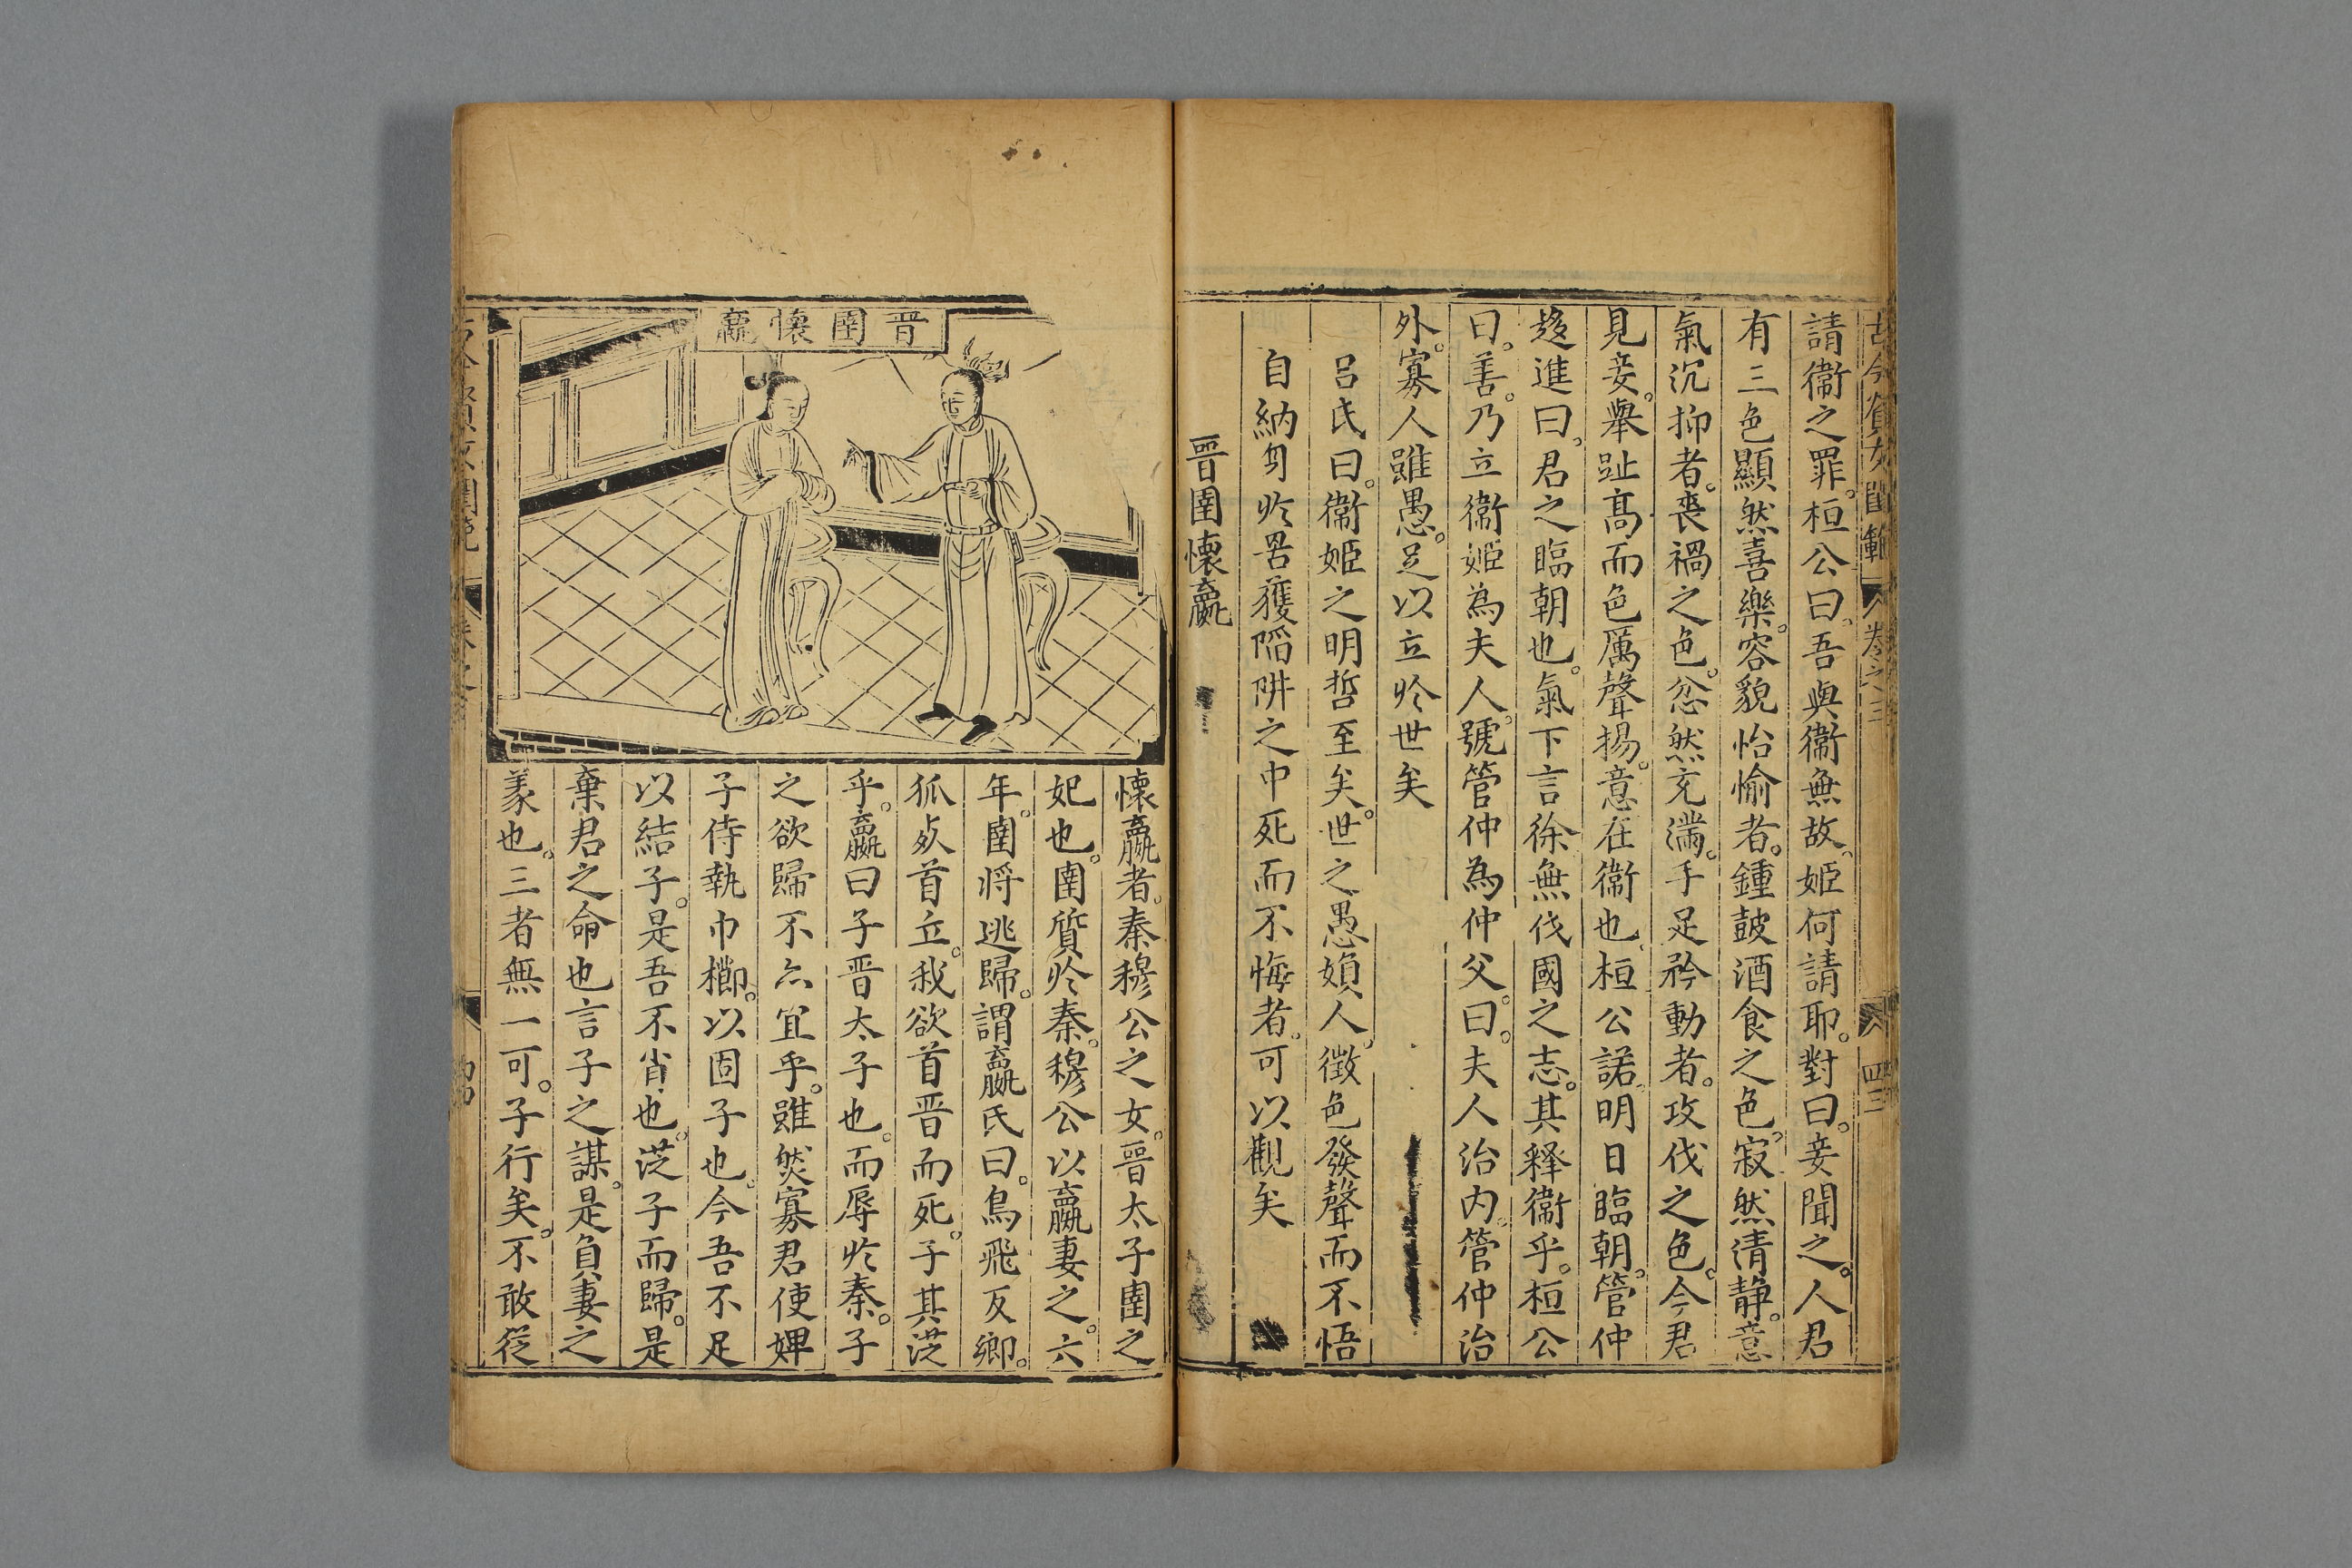 古今貞女閨範 卷之三 四三
請衞之罪。桓公曰。吾與衞無故。姬何請耶。對曰。妾聞之。人君
有三色顯然喜樂。容貌怡愉者。鍾鼓酒食之色。寂然清静。意
氣沉抑者。喪禍之色。忿然充滿。手足矜動者。攻伐之色。今君
見妾。舉趾髙而色厲聲揚。意在衞也。桓公諾。明日臨朝。管仲
趍進曰。君之臨朝也。氣下言徐。無伐國之志。其釋衞乎。桓公
曰。善。乃立衞姬為夫人。號管仲為仲父。曰。夫人治内。管仲治
外。寡人雖愚。足以立於世矣
呂氏曰。衞姬之明哲至矣。世之愚嬪人。徵色發聲而不悟
自納身於罟獲陷阱之中死而不悔者。可以觀矣
晉圉懷嬴
晋圉懷嬴
懷嬴者。秦穆公之女。晉太子圉之
妃也。圉質於秦。穆公以嬴妻之。六
年。圉将逃歸。謂嬴氏曰。鳥飛反鄉。
狐死首丘。我欲首晋而死。子其從
乎。嬴曰子晋太子也。而辱於秦。子
之欲歸不亦宜乎。雖然寡君使婢
子侍執巾櫛。以固子也。今吾不足
以結子。是吾不肖也。從子而歸。是
棄君之命也言子之謀。是負妻之
義也。三者無一可。子行矣。不敢從